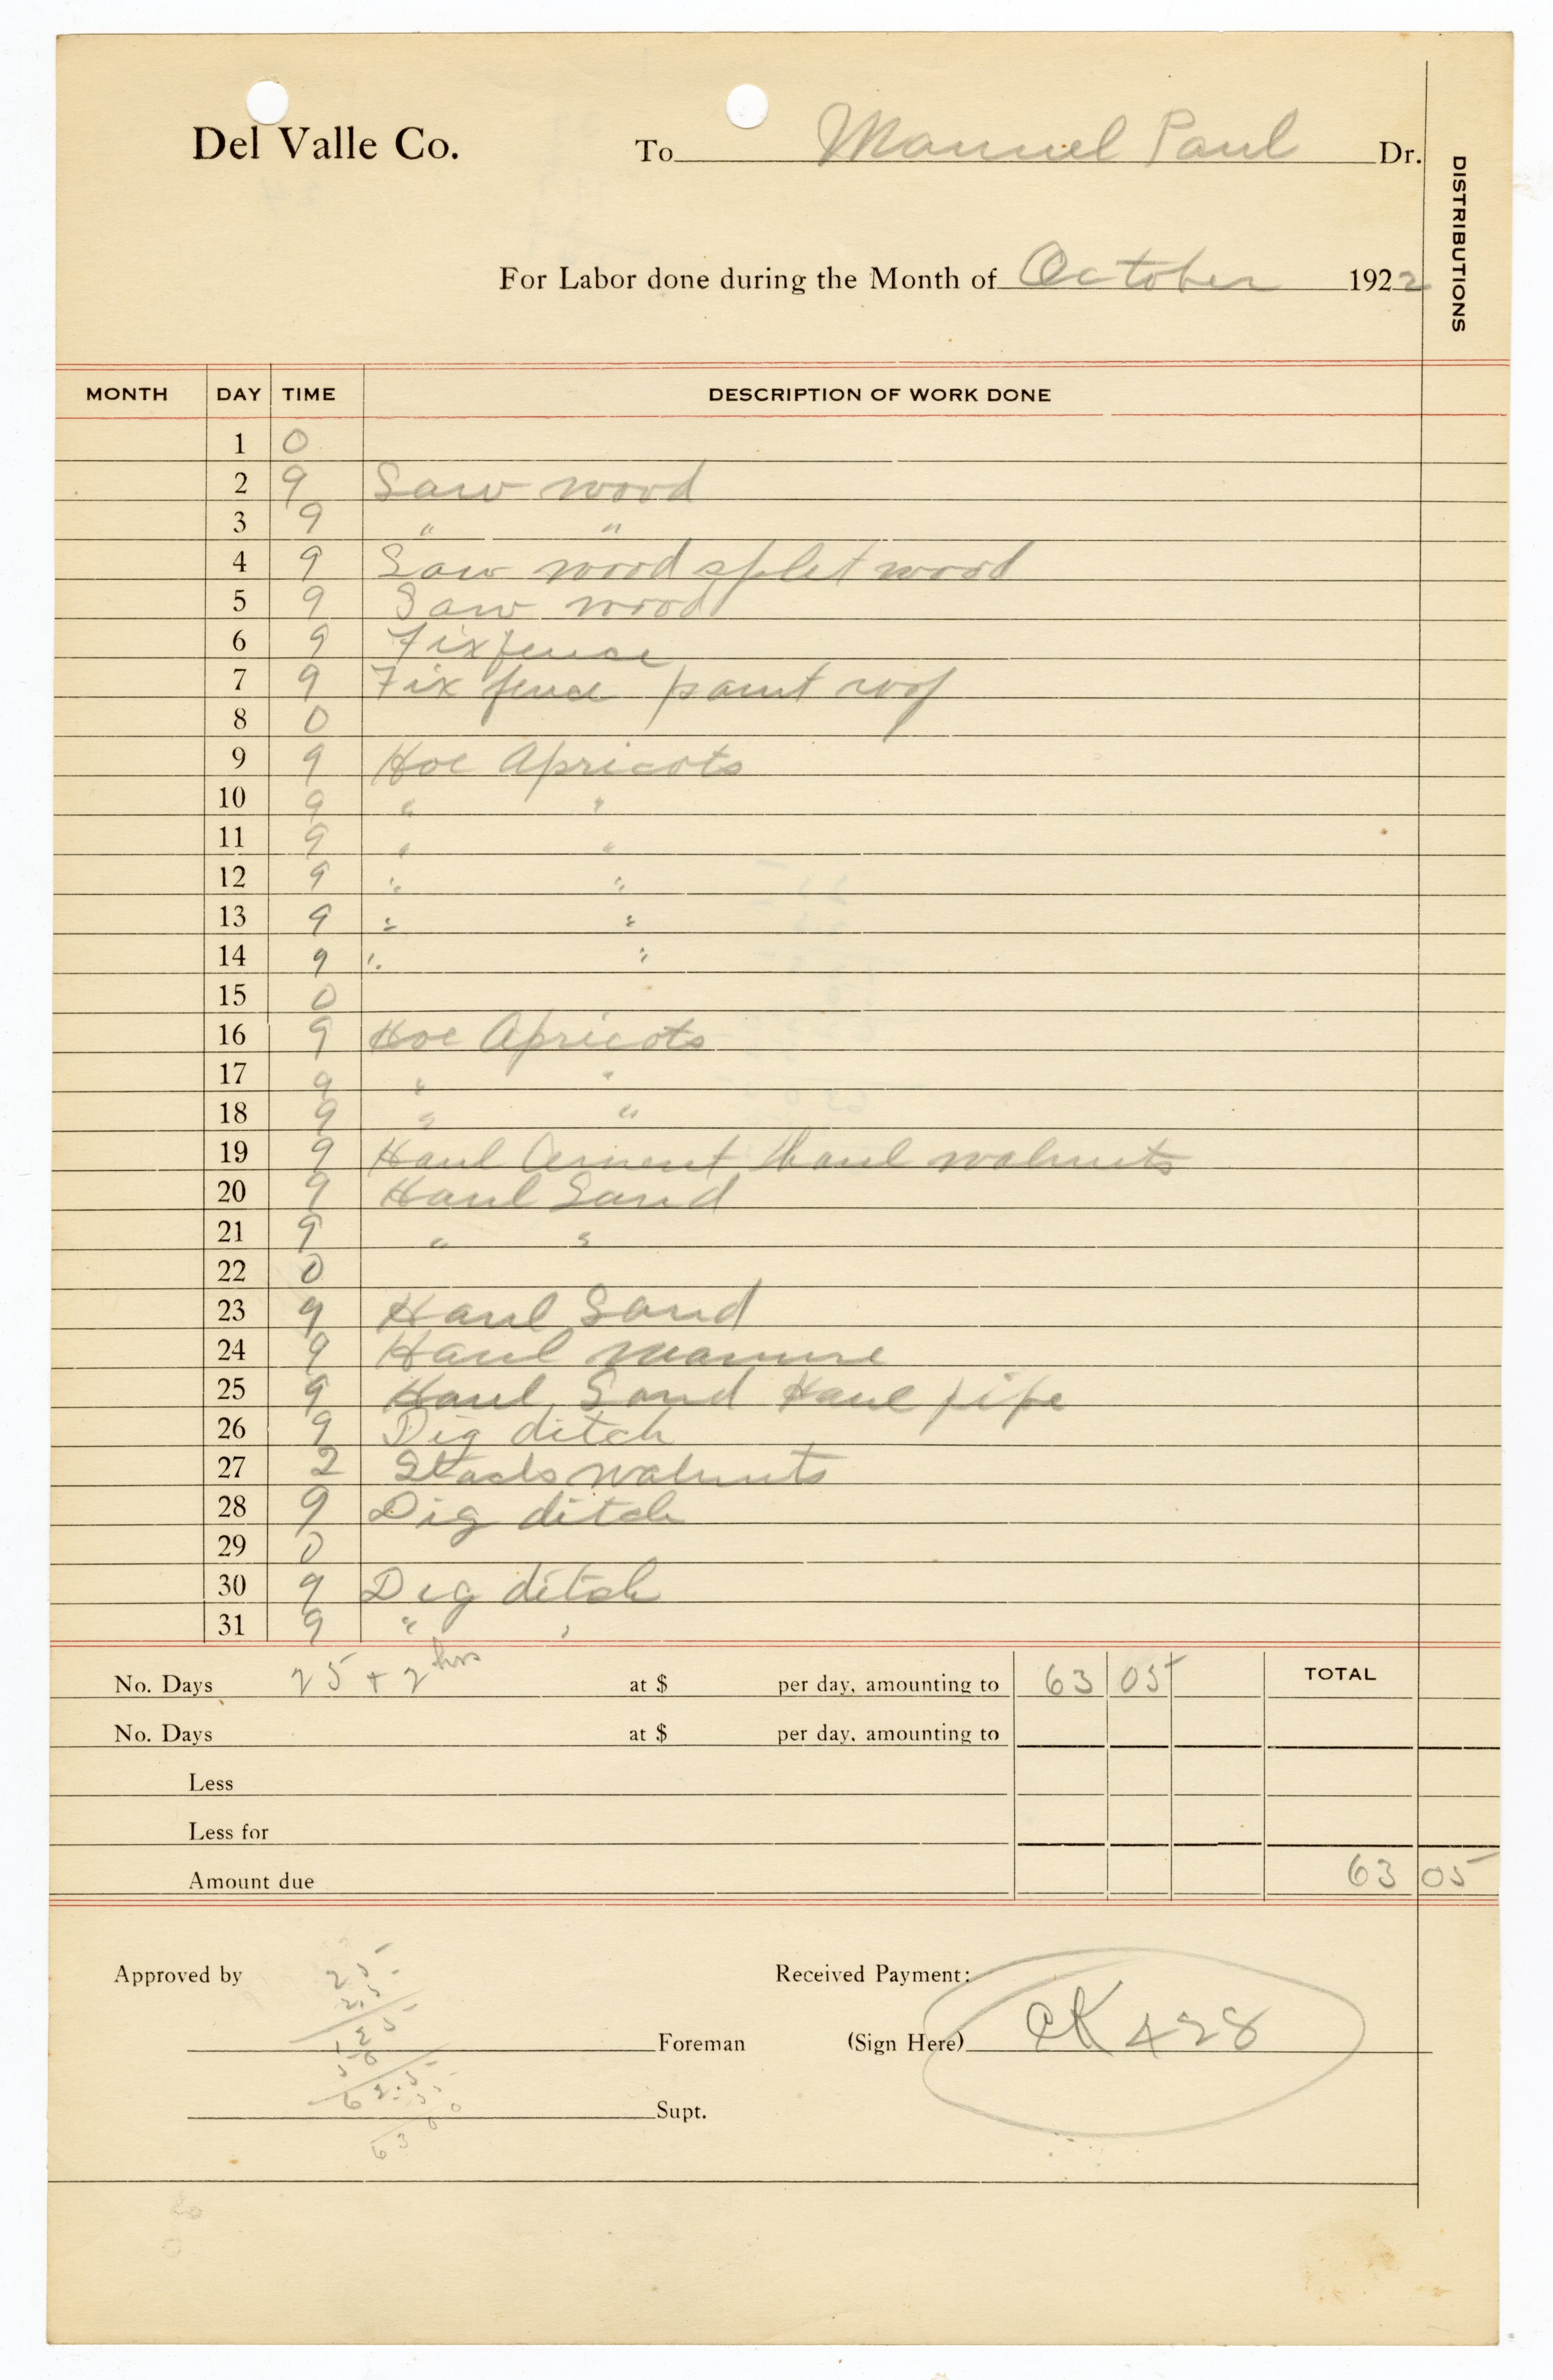 Del Valle Co. To Manuel Paul Dr.
DISTRIBUTIONS
For Labor done during the Month of October 1922
MONTH DAY TIME DESCRIPTION OF WORK DONE
1 0
2 9 Saw wood
3 9 " "
4 9 Saw wood split wood
5 9 Saw wood
6 9 Fix fence
7 9 Fix fence paint roof
8 0
9 9 Hoe Apricots
10 9 " "
11 9 " "
12 9 " "
13 9 " "
14 9 " "
15 0
16 9 Hoe Apricots
17 9 " "
18 9 " "
19 9 Haul Cement Haul walnuts
20 9 Haul Sand
21 9 " "
22 0
23 9 Haul Sand
24 9 Haul manure
25 9 Haul Sand Haul pipe
26 9 Dig ditch
27 2 walnuts
28 9 Dig ditch
29 0
30 9 Dig ditch
31 9 " "
No. Days 25 + 2 hrs at $ per day, amounting to 63 05 TOTAL
No. Days at $ per day, amounting to
Less
Less for
Amount due 63 05
Approved by Received Payment:
Foreman (Sign Here) CK 428
Supt.
25
2.5
125
50
62.5